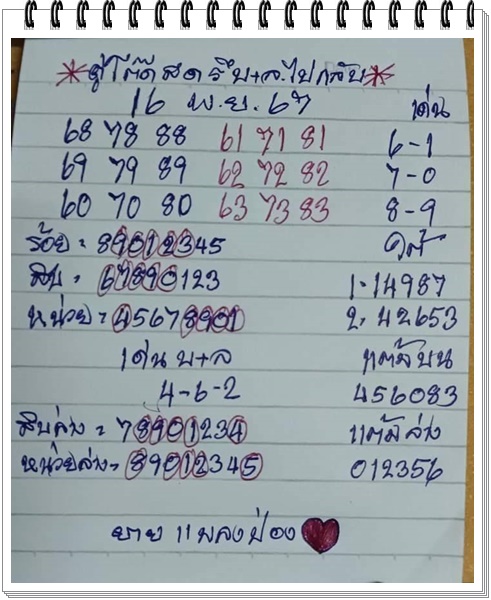 *คู่โต๊ด สด รีบ+ล.ไปกลับ*
16 พ.ย. 67 เด่น
68 78 88 61 71 81 6-1
69 79 89 62 72 82 7-0
60 70 80 63 73 83 8-9
ร้อย = 89012345
สิบ = 67890123 1.14987
หน่วย = 45678901 2. 42653
เด่น บ+ล แต้มบน
4-6-2 456083
สิบล่าง = 78901234 แต้มล่าง
หน่วยล่าง = 89012345 012356
ยาย แพลงป่อง